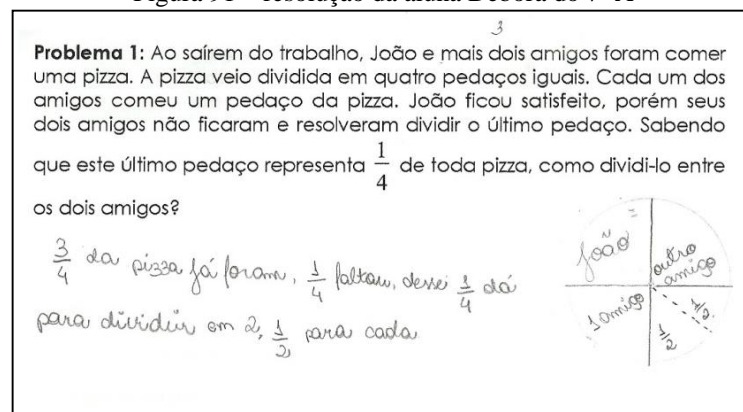 3
Problema 1: Ao saírem do trabalho, João e mais dois amigos foram comer
uma pizza. A pizza veio dividida em quatro pedaços iguais. Cada um dos
amigos comeu um pedaço da pizza. João ficou satisfeito, porém seus
dois amigos não ficaram e resolveram dividir o último pedaço. Sabendo
que este último pedaço representa 1/4 de toda pizza, como dividi-lo entre
os dois amigos?
3/4 da pizza já foram, 1/4 faltou, desse 1/4 dá
para dividir em 2, 1/2 para cada
João
outro
amigo
1 amigo
1/2
1/2